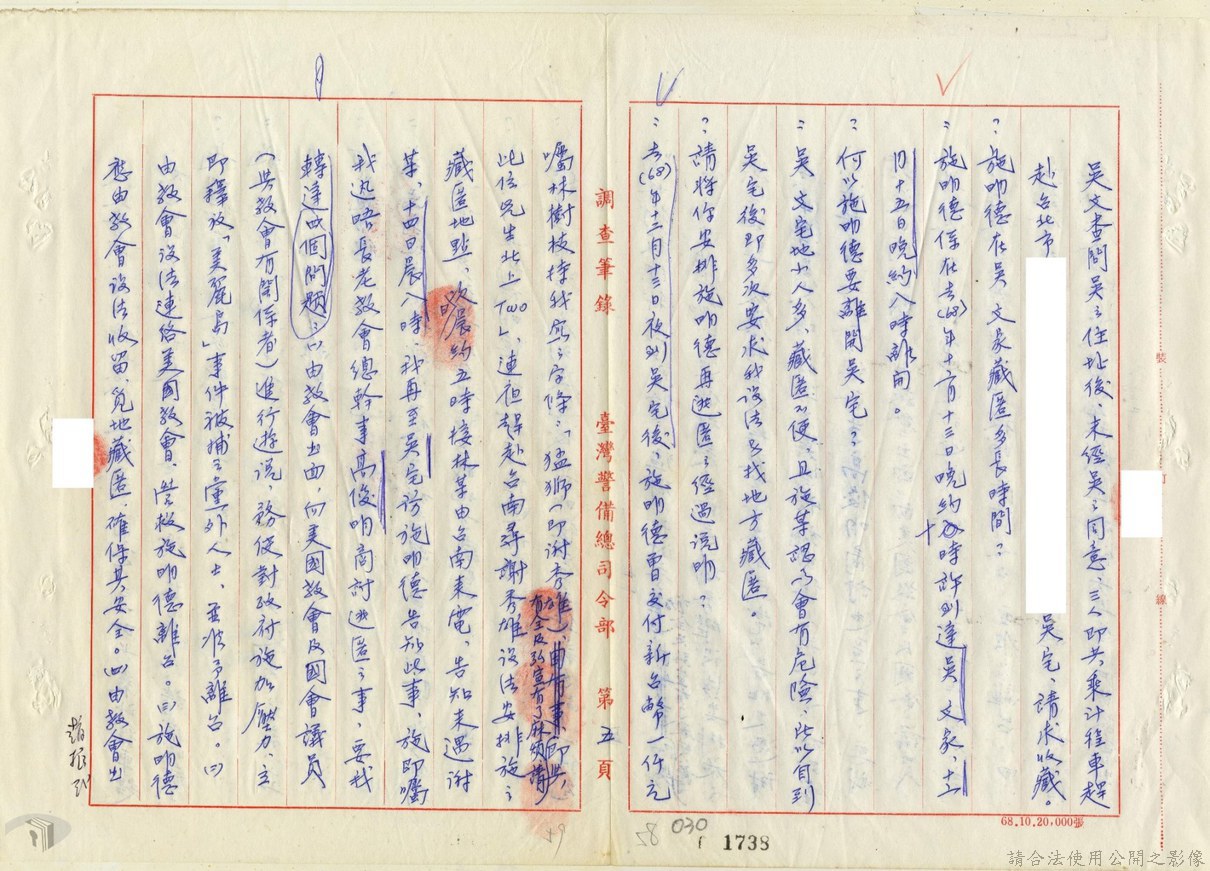 吳文查問吳之住址後、未經吳之同意、三人即共乘計程車趕
赴台北市
吳宅、請求收藏。
？施明德在吳 文家藏匿多長時間？
：施明德係在去(68)年十二月十三日晚約十時許到達吳 文家、十二
月十五日晚約八時離開。
？何以施明德要離開吳宅？
：吳 文宅地小人多、藏匿不便、且施某認為會有危險、此以自到
吳宅後即多次要求我設法多找地方藏匿。
？請將你安排施明德再逃匿之經過說明？
：去(68)年十二月十三日夜到吳宅後、施明德曾交付新台幣一仟元
調查筆錄 臺灣警備總司令部 第五頁
囑林樹枝持我照之字條：「猛獅(即謝秀雄)、
有全及弘宣有了麻煩、
此位先生北上Two」、連袒趕赴台南尋謝秀雄設法安排施之
藏匿地點、次晨約五時接林某由台南來電、告知未遇謝
某、十四日晨八時、我再至吳宅訪施明德告知此事、施即囑
我迅晤長老教會總幹事高俊明商討逃匿之事、要我
轉達四個問題：㈠由教會出面、向美國教會及國會議員
(與教會有關係者)進行遊說、務使對政府施加壓力、立
即釋放「美麗島」事件被捕之黨外人士、並准予離台。㈡
由教會設法連絡美國教會、營救施明德離台。㈢施明德
應由教會設法收留、覓地藏匿、確保其安全。㈣由教會出
趙振
68.10.20,000張
裝 訂 線
030
58
59
1738
請合法使用公開之影像